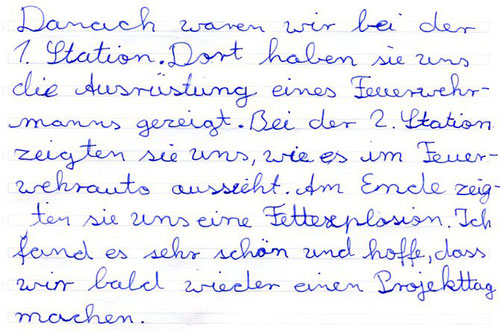 Danach waren wir bei der
1. Station. Dort haben sie uns
die Ausrüstung eines Feuerwehr-
manns gezeigt. Bei der 2. Station
zeigten sie uns, wie es im Feuer-
wehrauto aussieht. Am Ende zeig-
ten sie uns eine Fettexplosion. Ich
fand es sehr schön und hoffe, dass
wir bald wieder einen Projekttag
machen.